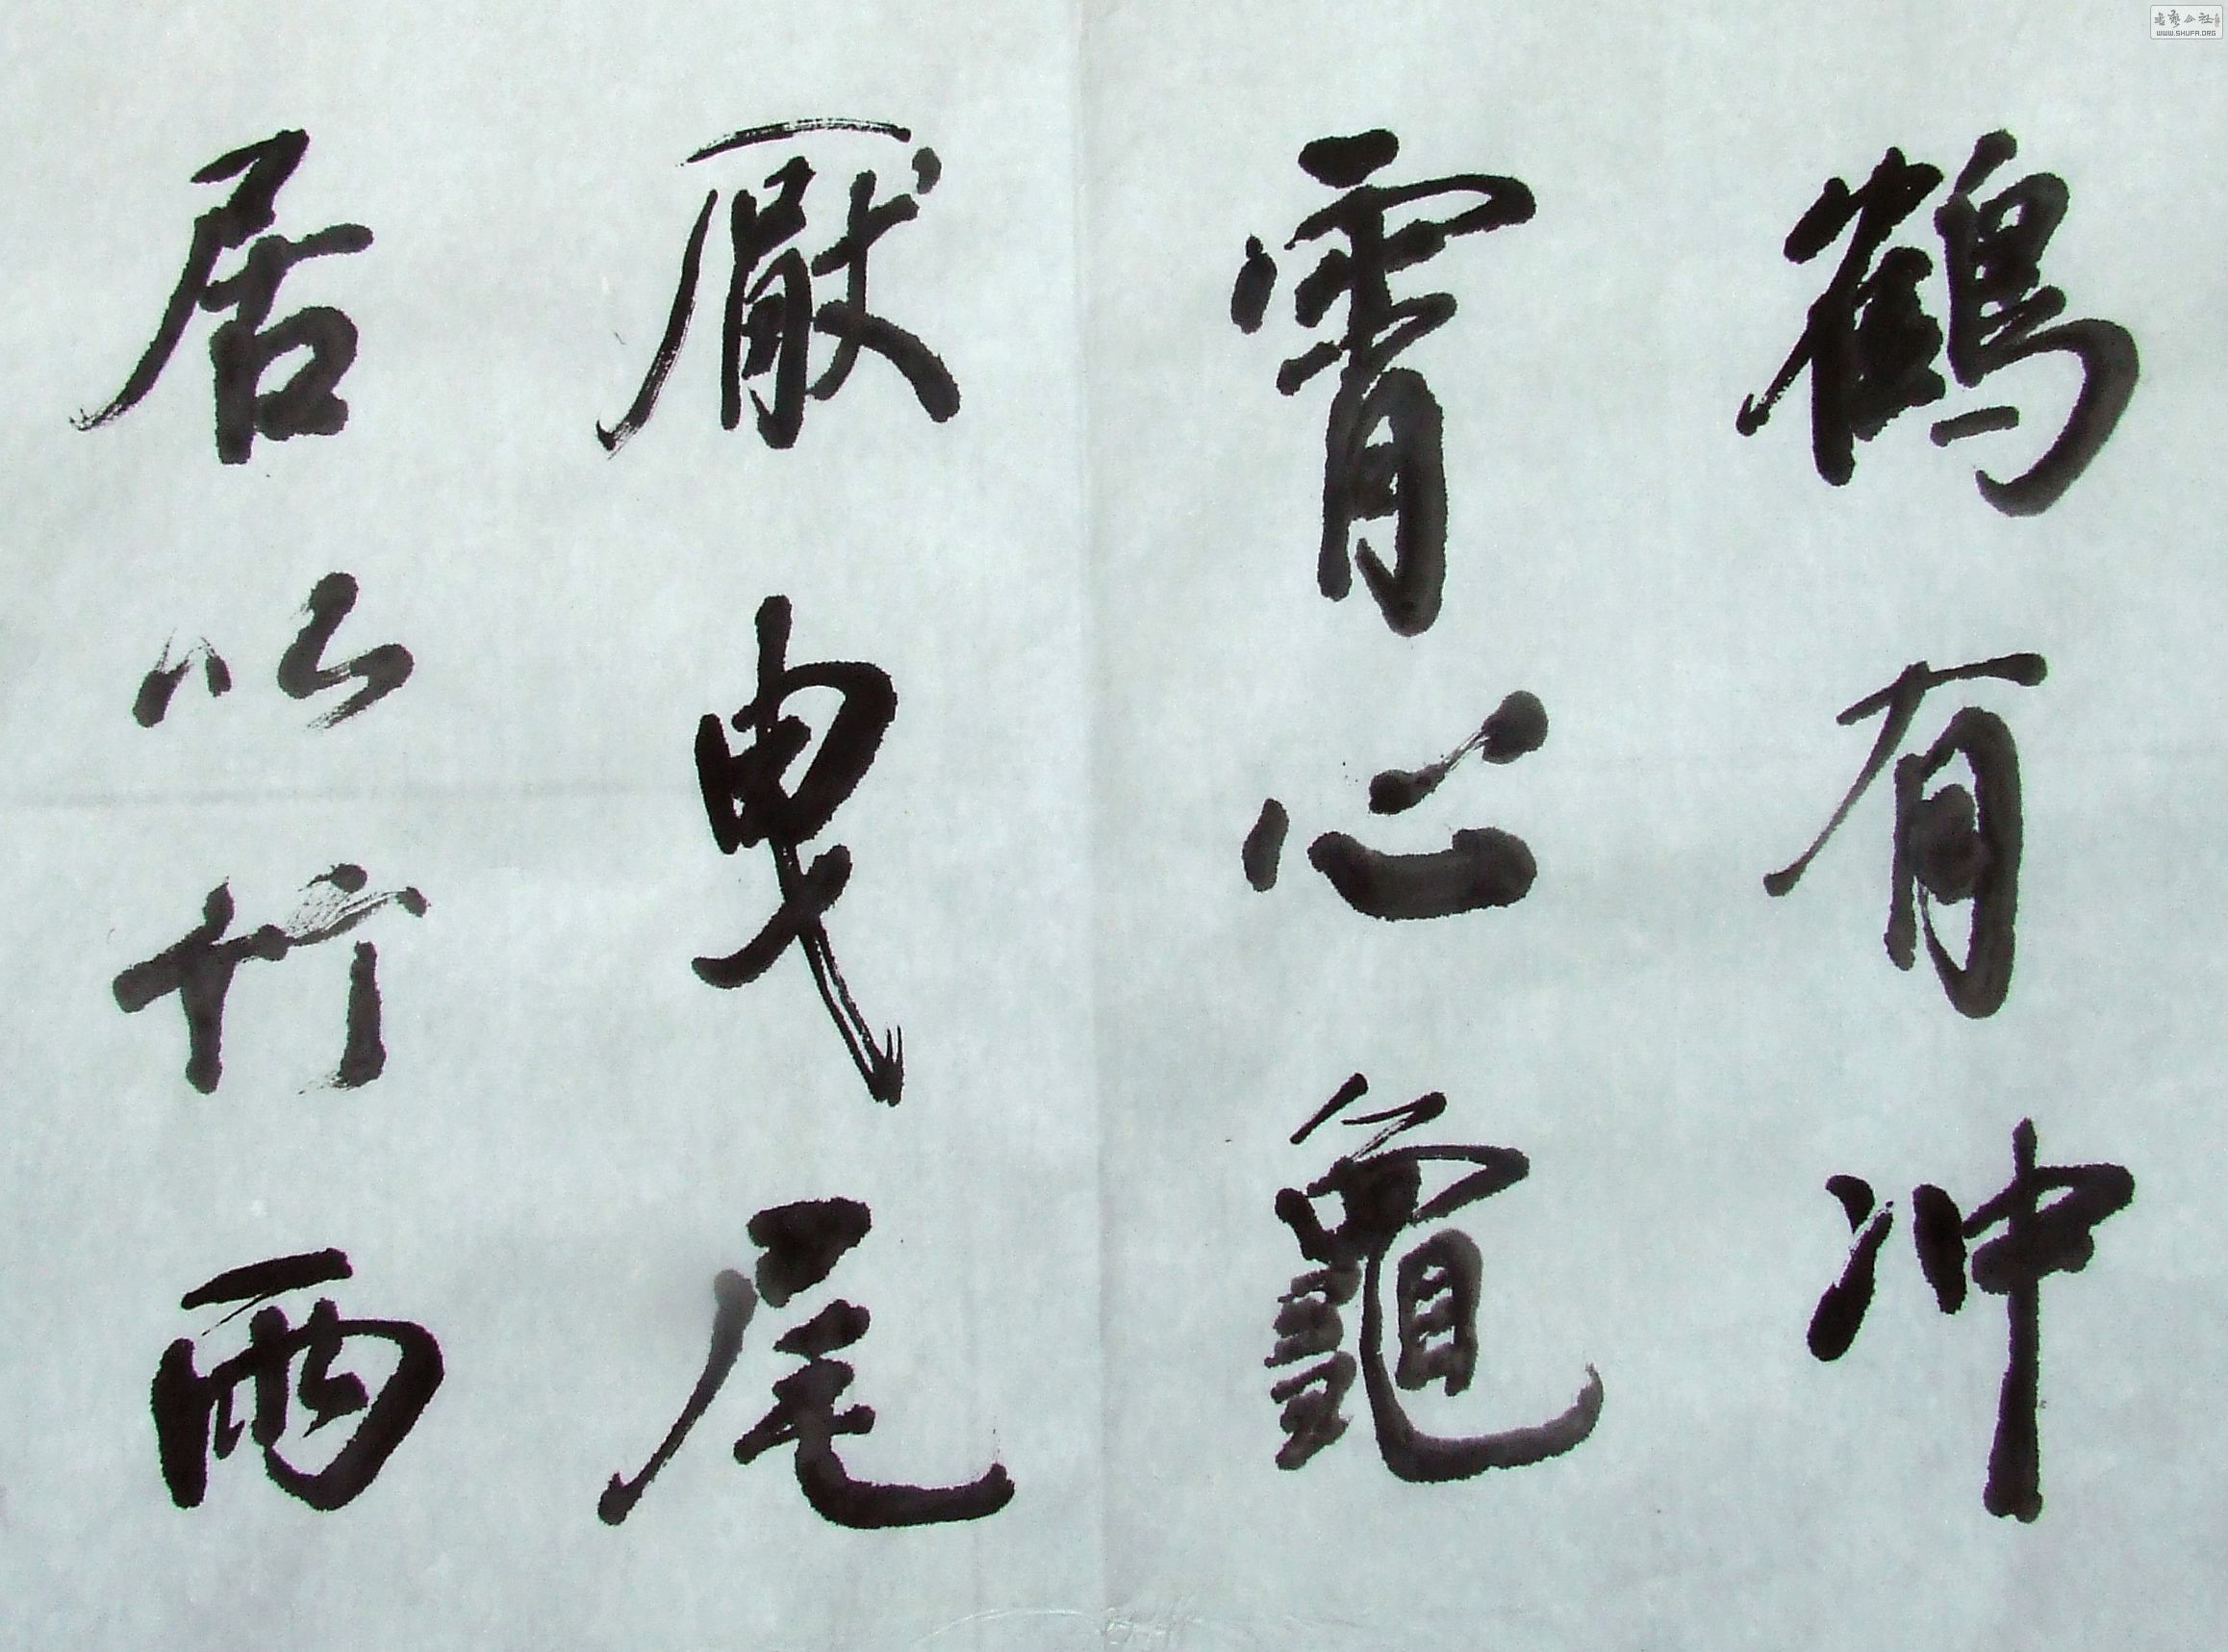 鶴有冲
霄心龜
厭曳尾
居以竹兩
书艺公社
WWW.SHUFA.ORG